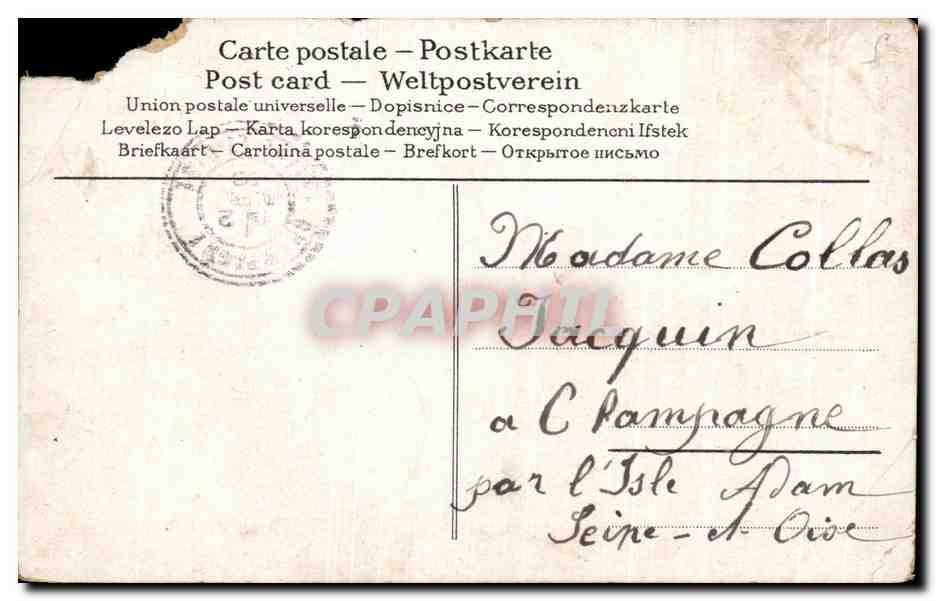 Carte postale – Postkarte
Post card — Weltpostverein
Union postale universelle — Dopisnice – Correspondenzkarte
Levelezo Lap – Karta korespondencyjna – Korespondencni Ifstek
Briefkaart – Cartolina postale – Brefkort – Открытое письмо
Madame Collas
Jacquin
a Champagne
par l'Isle Adam
Seine-et-Oise
CPAPHIL